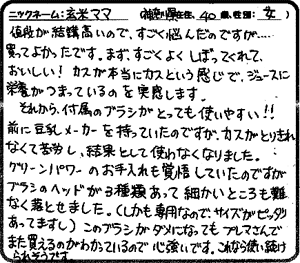 ニックネーム:玄米ママ （神奈川県在住、40歳、性別：女）
値段が結構高いので、すごく悩んだのですが….
買ってよかったです。まず、すごくよくしぼってくれて、
おいしい！カスが本当にカスという感じで、ジュースに
栄養がつまっているのを実感します。
それから、付属のブラシがとっても使いやすい!!
前に豆乳メーカーを持っていたのですが、カスがとりきれ
なくて苦労し、結果として使わなくなりました。
グリーンパワーのお手入れも覚悟していたのですが
ブラシのヘッドが3種類あって細かいところも難
なく落とせました。（しかも専用なので、サイズがピッタリ
あってますし）このブラシがダメになってもプレマさんで
また買えるのがわかっているので心強いです。これなら使い続け
られそうです